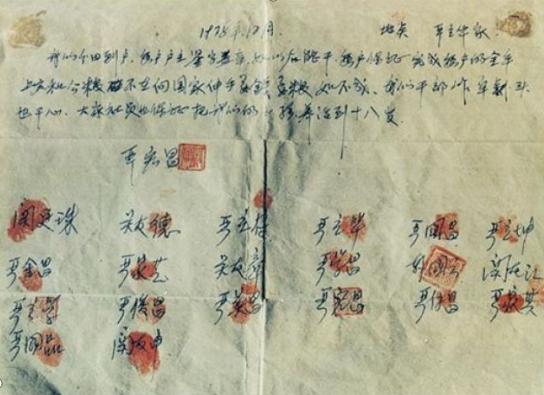 1978年12月 地点 严立华家
我们分田到户,每户户主签字盖章,如以后能干,每户保证完成每户的全年
上交和公粮不在向国家伸手要钱要粮,如不成,我们干部作牢刹头
也干心,大家社员也保证把我们的小孩养活到十八岁.
严宏昌
关廷珠 关友德 严立符 严立华 严国昌 严立坤
严金昌 严家芝 关友章 严学昌 韩国云 关友江
严立学 严俊昌 严美昌 严宏昌 严付昌 严家其
严国品 关友申